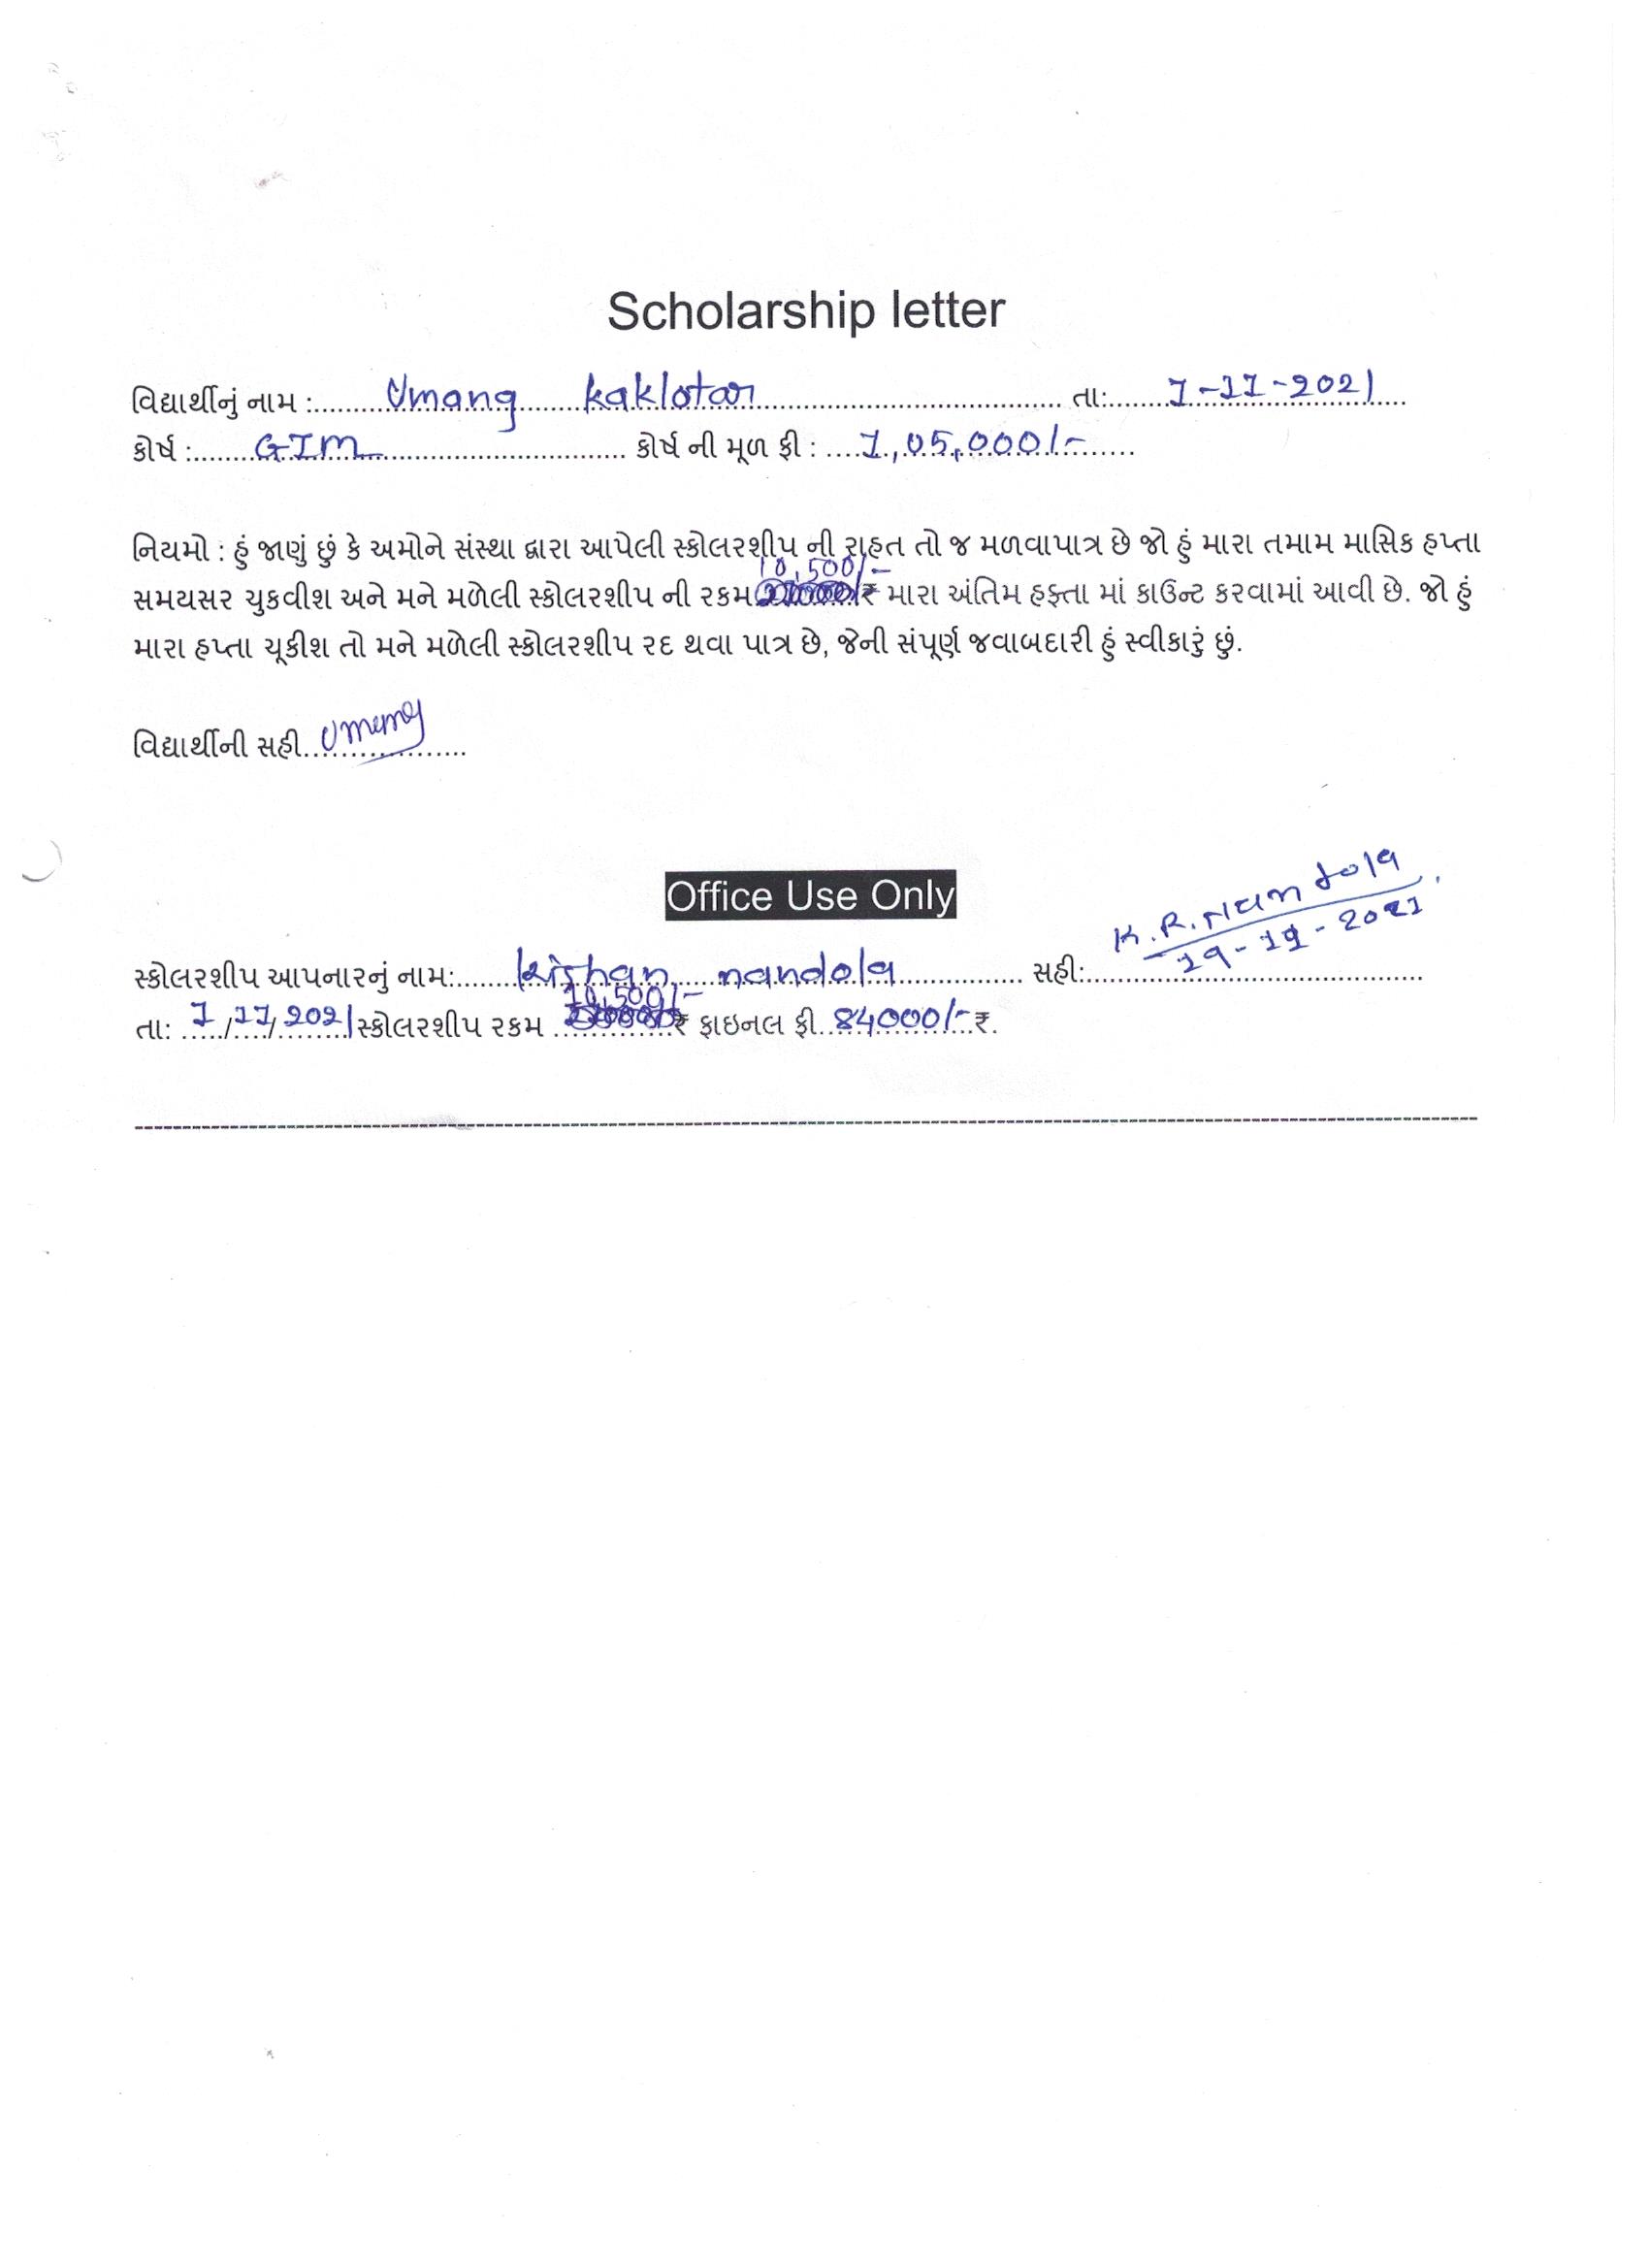 Scholarship letter
વિદ્યાર્થીનું નામ :........Umang kaklotar........ તા:.......1-11-2021
કોર્ષ :.......GIM........ કોર્ષ ની મૂળ ફી : ....1,05,000/-.......
નિયમો : હું જાણું છું કે અમોને સંસ્થા દ્વારા આપેલી સ્કોલરશીપ ની રાહત તો જ મળવાપાત્ર છે જો હું મારા તમામ માસિક હપ્તા
10,500/-
સમયસર ચુકવીશ અને મને મળેલી સ્કોલરશીપ ની રકમ ₹ મારા અંતિમ હફ્તા માં કાઉન્ટ કરવામાં આવી છે. જો હું
મારા હપ્તા ચૂકીશ તો મને મળેલી સ્કોલરશીપ રદ થવા પાત્ર છે, જેની સંપૂર્ણ જવાબદારી હું સ્વીકારું છું.
વિદ્યાર્થીની સહી..Umang
Office Use Only
K.R.Nandola
સ્કોલરશીપ આપનારનું નામ:......kishan nandola........ સહી:........
10,500/-
તા: 1/11/2021 સ્કોલરશીપ રકમ ₹ ફાઇનલ ફી..84000/-...₹.